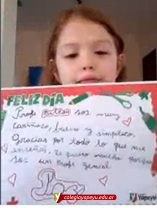 FELIZ DÍA
Profe sos muy
cariñoso, bueno y simpático
Gracias por todo lo que me
enseñas, te quiero mucho porque
sos un profe genial.
colegioyapeyu.edu.ar